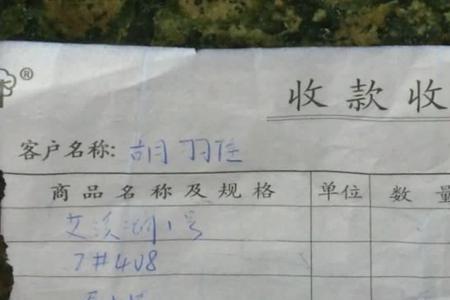 ®
收款收
客户名称: 胡羽佳
商品名称及规格 单位 数量
艾溪湖1号
7#408